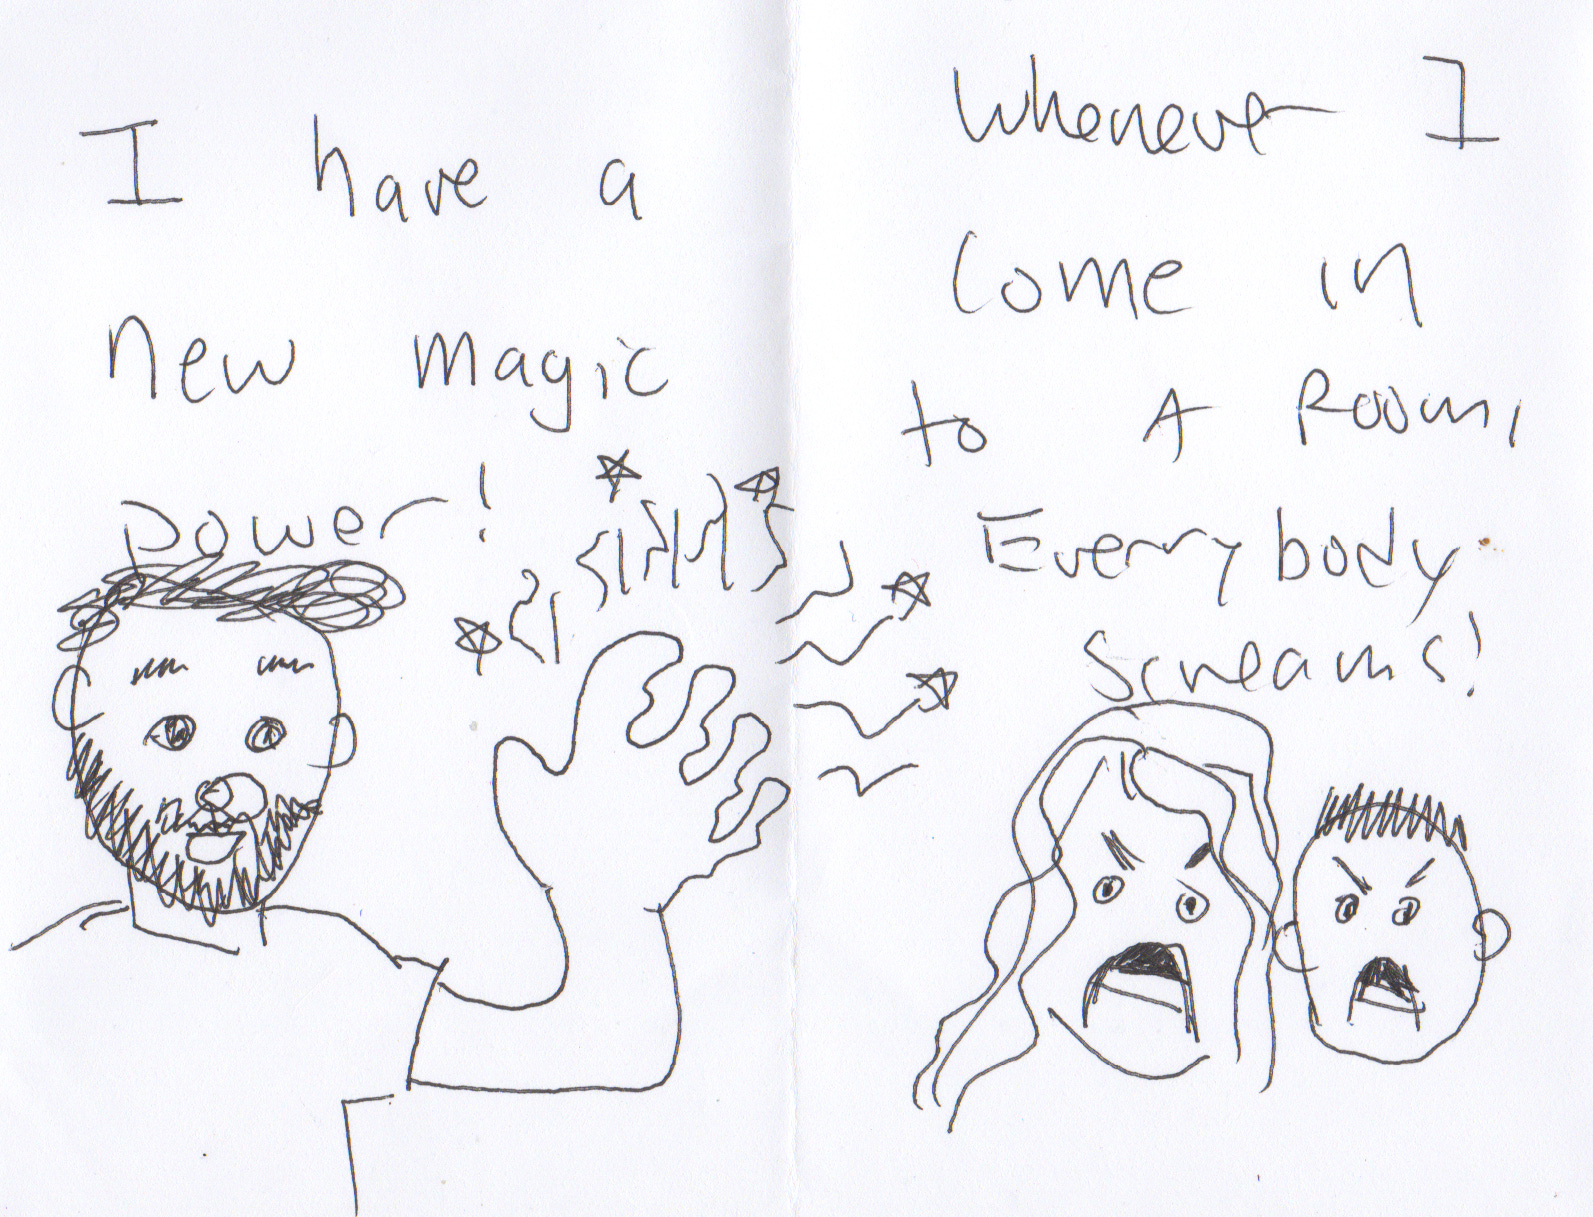 I have a
new magic
power!
Whenever I
come in
to A Room,
Everybody
screams!